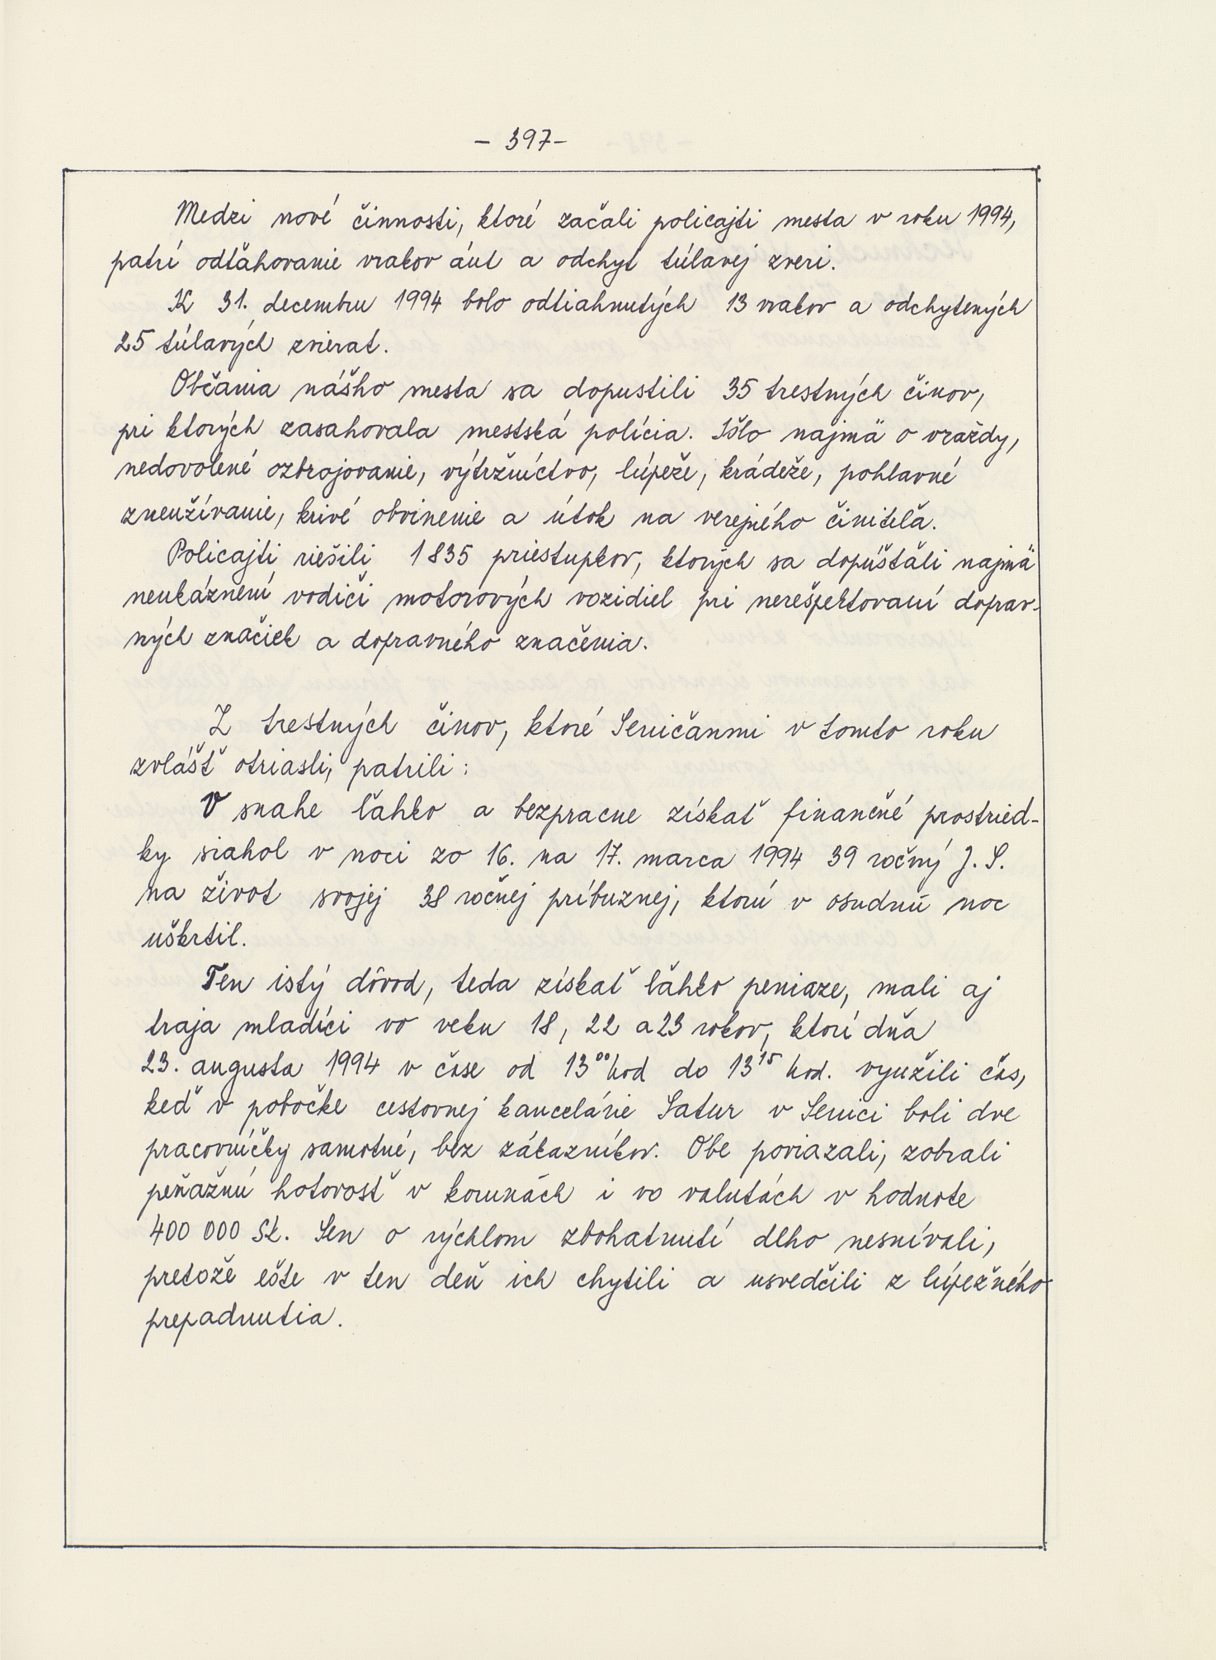 - 397 -
Medzi nové činnosti, ktoré začali policajti mesta v roku 1994,
patrí odťahovanie vrakov áut a odchyt túlavej zveri.
K 31. decembru 1994 bolo odtiahnutých 13 vrakov a odchytených
25 túlavých zvierat.
Občania nášho mesta sa dopustili 35 trestných činov,
pri ktorých zasahovala mestská polícia. Išlo najmä o vraždy,
nedovolené ozbrojovanie, výtržníctvo, lúpeže, krádeže, pohlavné
zneužívanie, krivé obvinenie a útok na verejného činiteľa.
Policajti riešili 1835 priestupkov, ktorých sa dopúšťali najmä
neukáznení vodiči motorových vozidiel pri nerešpektovaní doprav-
ných značiek a dopravného značenia.
Z trestných činov, ktoré Seničanmi v tomto roku
zvlášť otriasli, patrili:
V snahe ľahko a bezpracne získať finančné prostried-
ky siahol v noci zo 16. na 17. marca 1994 39 ročný J. S.
na život svojej 38 ročnej príbuznej, ktorú v osudnú noc
uškrtil.
Ten istý dôvod, teda získať ľahko peniaze, mali aj
traja mladíci vo veku 18, 22 a 23 rokov, ktorí dňa
23. augusta 1994 v čase od 13⁰⁰ hod do 13¹⁵ hod. využili čas,
keď v pobočke cestovnej kancelárie Satur v Senici boli dve
pracovníčky samotné, bez zákazníkov. Obe poviazali, zobrali
peňažnú hotovosť v korunách i vo valutách v hodnote
400 000 Sk. Sen o rýchlom zbohatnutí dlho nesnívali,
pretože ešte v ten deň ich chytili a usvedčili z lúpežného
prepadnutia.